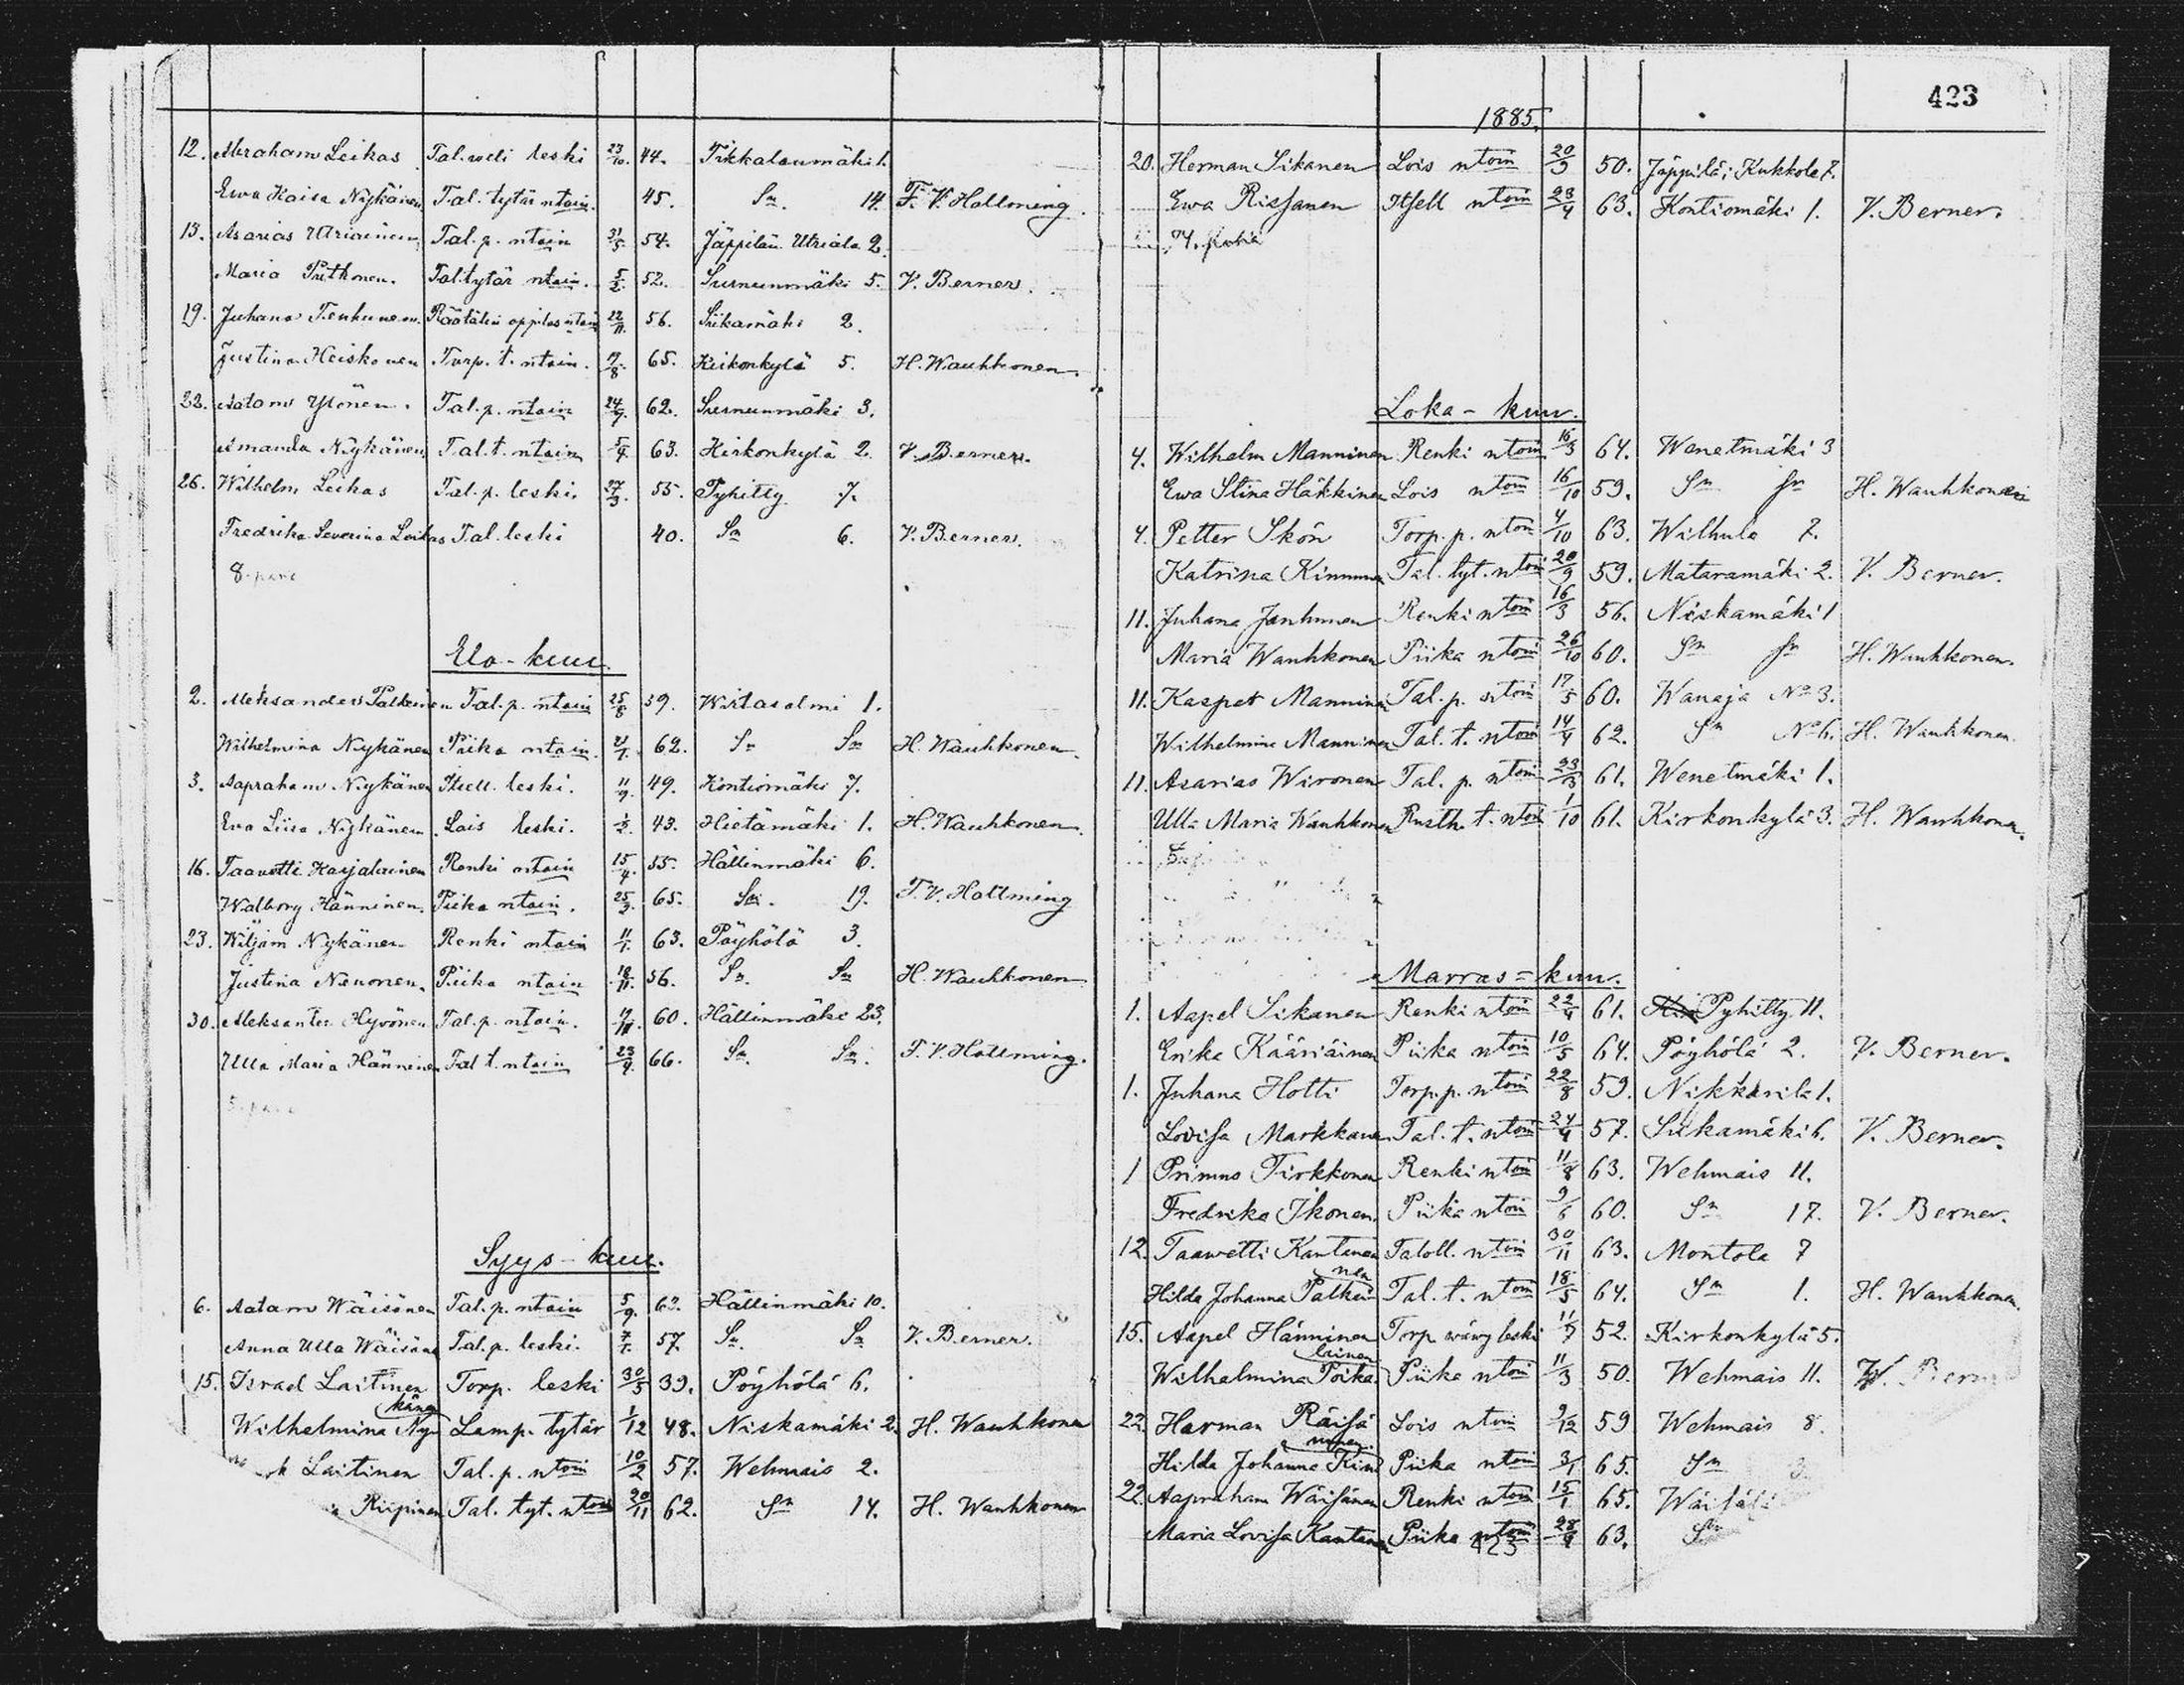 12. Abraham Leikas Tal. veli leski 23/10. 44. Tikkalanmäki 1.
Ewa Kaisa Nykänen Tal. tytär ntoin. 45. Sn. 14. F. V. Hallming.
13. Asarias Utriainen Tal. p. ntoin 31/5 54. Jäppilän Utriala 2.
Maria Putkonen. Tal. tytär ntoin. 5/2. 52. Surnunmäki 5. V. Berner.
19. Juhana Tenhunen. Räätälin oppilas ntoin 22/11. 56. Siikamäki 2.
Justina Heiskonen Torp. t. ntoin. 65. Kirkonkylä 5. H. Wauhkonen.
22. Aatam Ylönen. Tal. p. ntoin 24/7. 62. Surnunmäki 3.
Amanda Nykänen Tal. t. ntoin 5/4. 63. Kirkonkylä 2. V. Berner.
26. Wilhelm Leikas Tal. p. leski. 27/3. 55. Pyhitty 7.
Fredrika Severina Leikas Tal. leski 40. Sn 6. V. Berner.
8. paria
Elo-kuu.
2. Aleksander Patkinen Tal. p. ntoin 25/8 59. Wirtasalmi 1.
Wilhelmina Nykänen Piika ntoin. 21/1. 62. Sn Sn H. Wauhkonen.
3. Aapraham Nykänen Itsell. leski. 11/9. 49. Kontiomäki 7.
Eva Liisa Nykänen Lois leski. 1/2. 43. Hietämäki 1. H. Wauhkonen.
16. Taavetti Karjalainen Renki ntoin 15/4 55. Hällinmäki 6.
Walborg Hänninen. Piika ntoin. 25/3. 65. Sn. 19. F. V. Hallming
23. Wiljam Nykänen Renki ntoin 11/1. 63. Pöyhölä 3.
Justina Nenonen. Piika ntoin 18/11. 56. Sn. Sn H. Wauhkonen
30. Aleksanter Hyvönen Tal. p. ntoin. 60. Hällinmäki 23.
Ulla Maria Hänninen Tal t. ntoin 23/4 66. Sn. Sn. F. V. Hallming.
5. paria
Syys-kuu.
6. Aatam Wäisänen Tal. p. ntoin 5/9. 62. Hällinmäki 10.
Anna Ulla Wäisänen Tal. p. leski. 7/1. 57. Sn. Sn V. Berner.
15. Israel Laitinen Torp. leski 30/5 39. Pöyhölä 6.
Wilhelmina Nykänen Lamp. tytär 1/12 48. Niskamäki 2. H. Wauhkonen
Laitinen Tal. p. ntoin 10/2 57. Wehmais 2.
Riipinen Tal. tyt. ntoin 20/11 62. Sn 14. H. Wauhkonen
423
1885.
20. Herman Sikanen Lois ntoin 20/9 50. Jäppilä; Kukkola 7.
Ewa Rissanen Itsell ntoin 23/4 63. Kontiomäki 1. V. Berner.
4. paria
Loka-kuu.
4. Wilhelm Manninen Renki ntoin 16/3 64. Wenetmäki 3
Ewa Stina Häkkinen Lois ntoin 16/10 59. Sn Sn H. Wauhkonen
4. Petter Skön Torp. p. ntoin 4/10 63. Wilhula 7.
Katrina Kinnunen Tal. tyt. ntoin 20/9 59. Mataramäki 2. V. Berner.
11. Juhana Janhunen Renki ntoin 16/3 56. Niskamäki 1
Maria Wauhkonen Piika ntoin 26/10 60. Sn Sn H. Wauhkonen.
11. Kasper Manninen Tal. p. ntoin 17/5 60. Wanaja No 3.
Wilhelmina Manninen Tal. t. ntoin 14/4 62. Sn No 6. H. Wauhkonen
11. Asarias Wironen Tal. p. ntoin 23/3 61. Wenetmäki 1.
Ulla Maria Wauhkonen Rusth. t. ntoin 1/10 61. Kirkonkylä 3. H. Wauhkonen.
Marras=kuu.
1. Aapel Sikanen Renki ntoin 22/4 61. Pyhitty 11.
Erika Kääriäinen Piika ntoin 10/5 64. Pöyhölä 2. V. Berner.
1. Juhana Hotti Torp. p. ntoin 22/8 59. Nikkarila 1.
Lovisa Markkanen Tal. t. ntoin 24/4 57. Siikamäki 6. V. Berner.
1 Primus Tirkkonen Renki ntoin 11/8 63. Wehmais 11.
Fredrika Ikonen. Piika ntoin 9/6 60. Sn 17. V. Berner.
12. Taavetti Kantanen Taloll. ntoin 30/11 63. Montola 7
Hilda Johanna Patkinen Tal. t. ntoin 18/5 64. Sn 1. H. Wauhkonen.
15. Aapel Hänninen Torp wäwy leski 11/7 52. Kirkonkylä 5.
Wilhelmina Poikalainen Piika ntoin 11/3 50. Wehmais 11. V. Berner
22. Harman Räisä Lois ntoin 9/12 59 Wehmais 8.
Hilda Johanna Kinnunen. Piika ntoin 3/1 65. Sn
22. Aapraham Wäisänen Renki ntoin 15/1 65.
Maria Lovisa Kantanen Piika ntoin 28/9 63. Sn
423